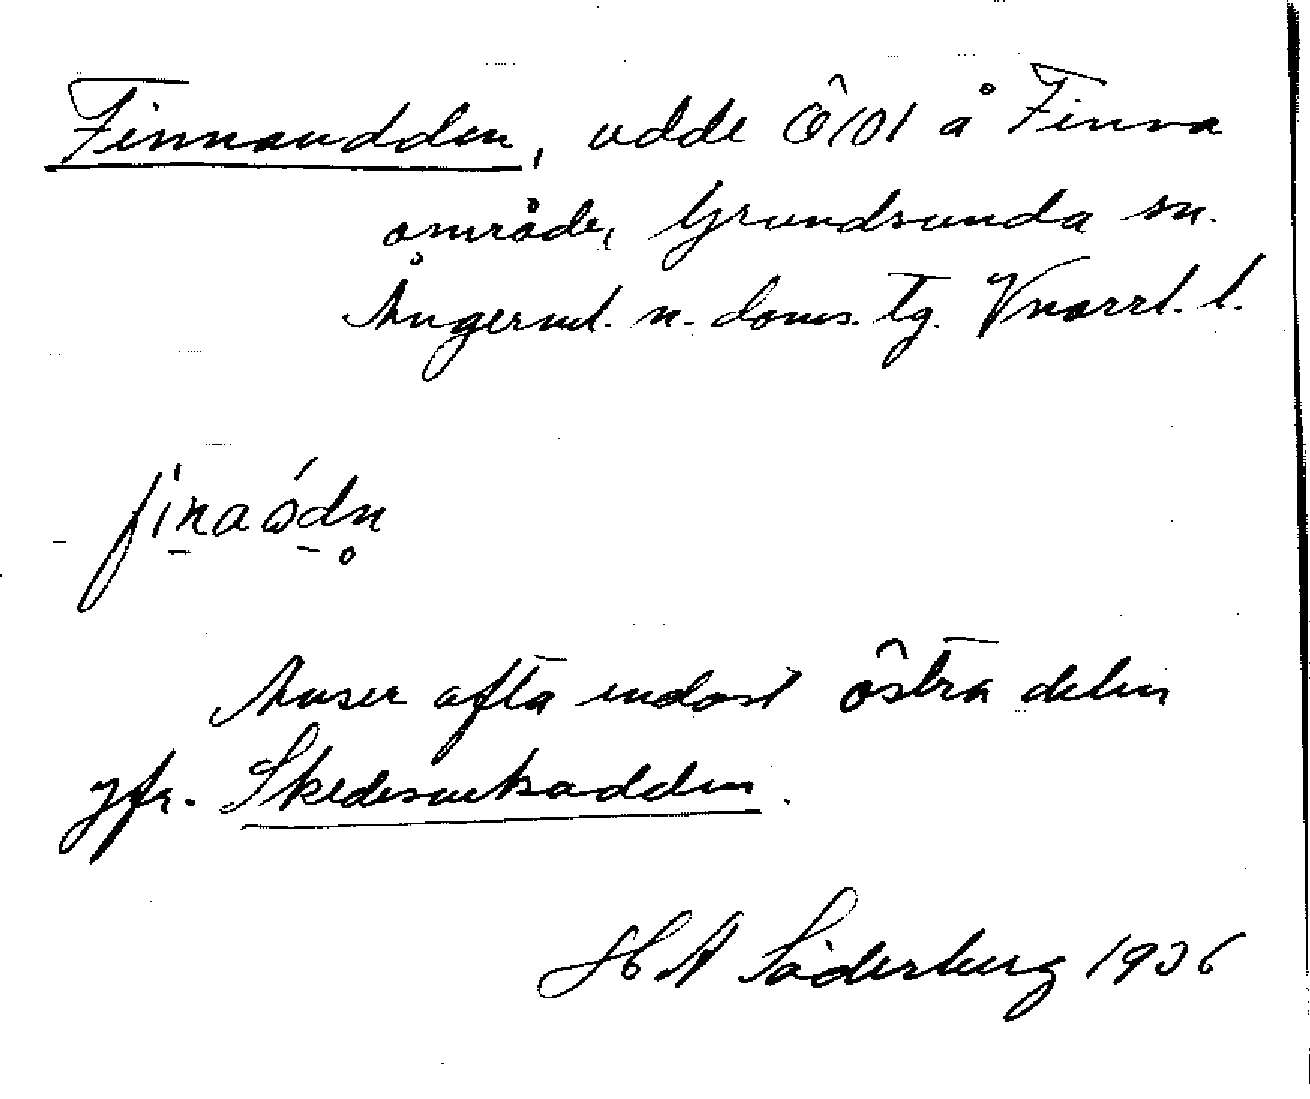 Finnaudden, udde Ö101 å Finna
område, Grundsunda sn.
Ångerml. n. doms. tg. Vnorrl. l.
finaódn
Avser ofta endast östra delen
jfr. Skedesviksudden.
H A Söderberg 1936